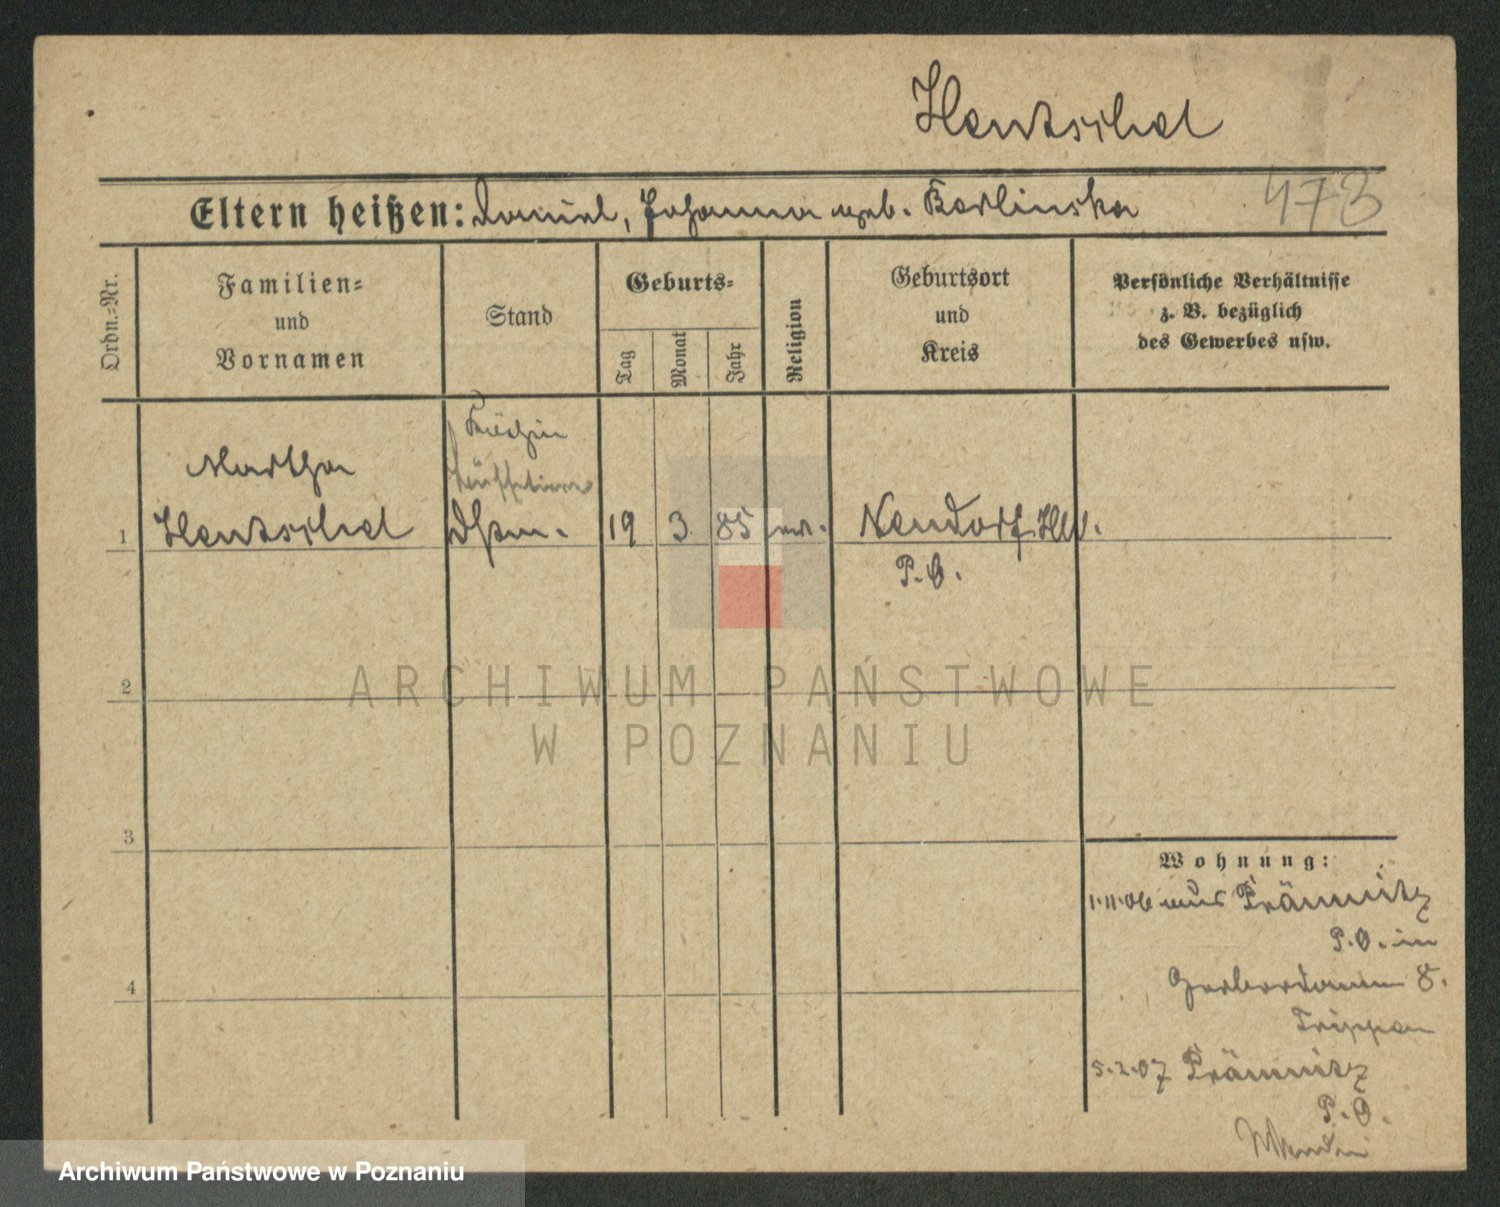 Hentschel
Eltern heißen: Daniel, Johanna geb. Berlinska
473
Ordn.=Nr.
Familien=
und
Vornamen
Stand
Geburts=
Tag
Monat
Jahr
Religion
Geburtsort
und
Kreis
Persönliche Verhältnisse
z. B. bezüglich
des Gewerbes usw.
Köchin
Martha
1 Hentschel 19 3 85 ev. Neudorf
P. O.
2
ARCHIWUM PAŃSTWOWE
W POZNANIU
3
Wohnung:
1.11.06 aus Prämnitz
P. O. in
4
Gerberdamm 8.
5.2.07 Prämnitz
P. O.
Archiwum Państwowe w Poznaniu